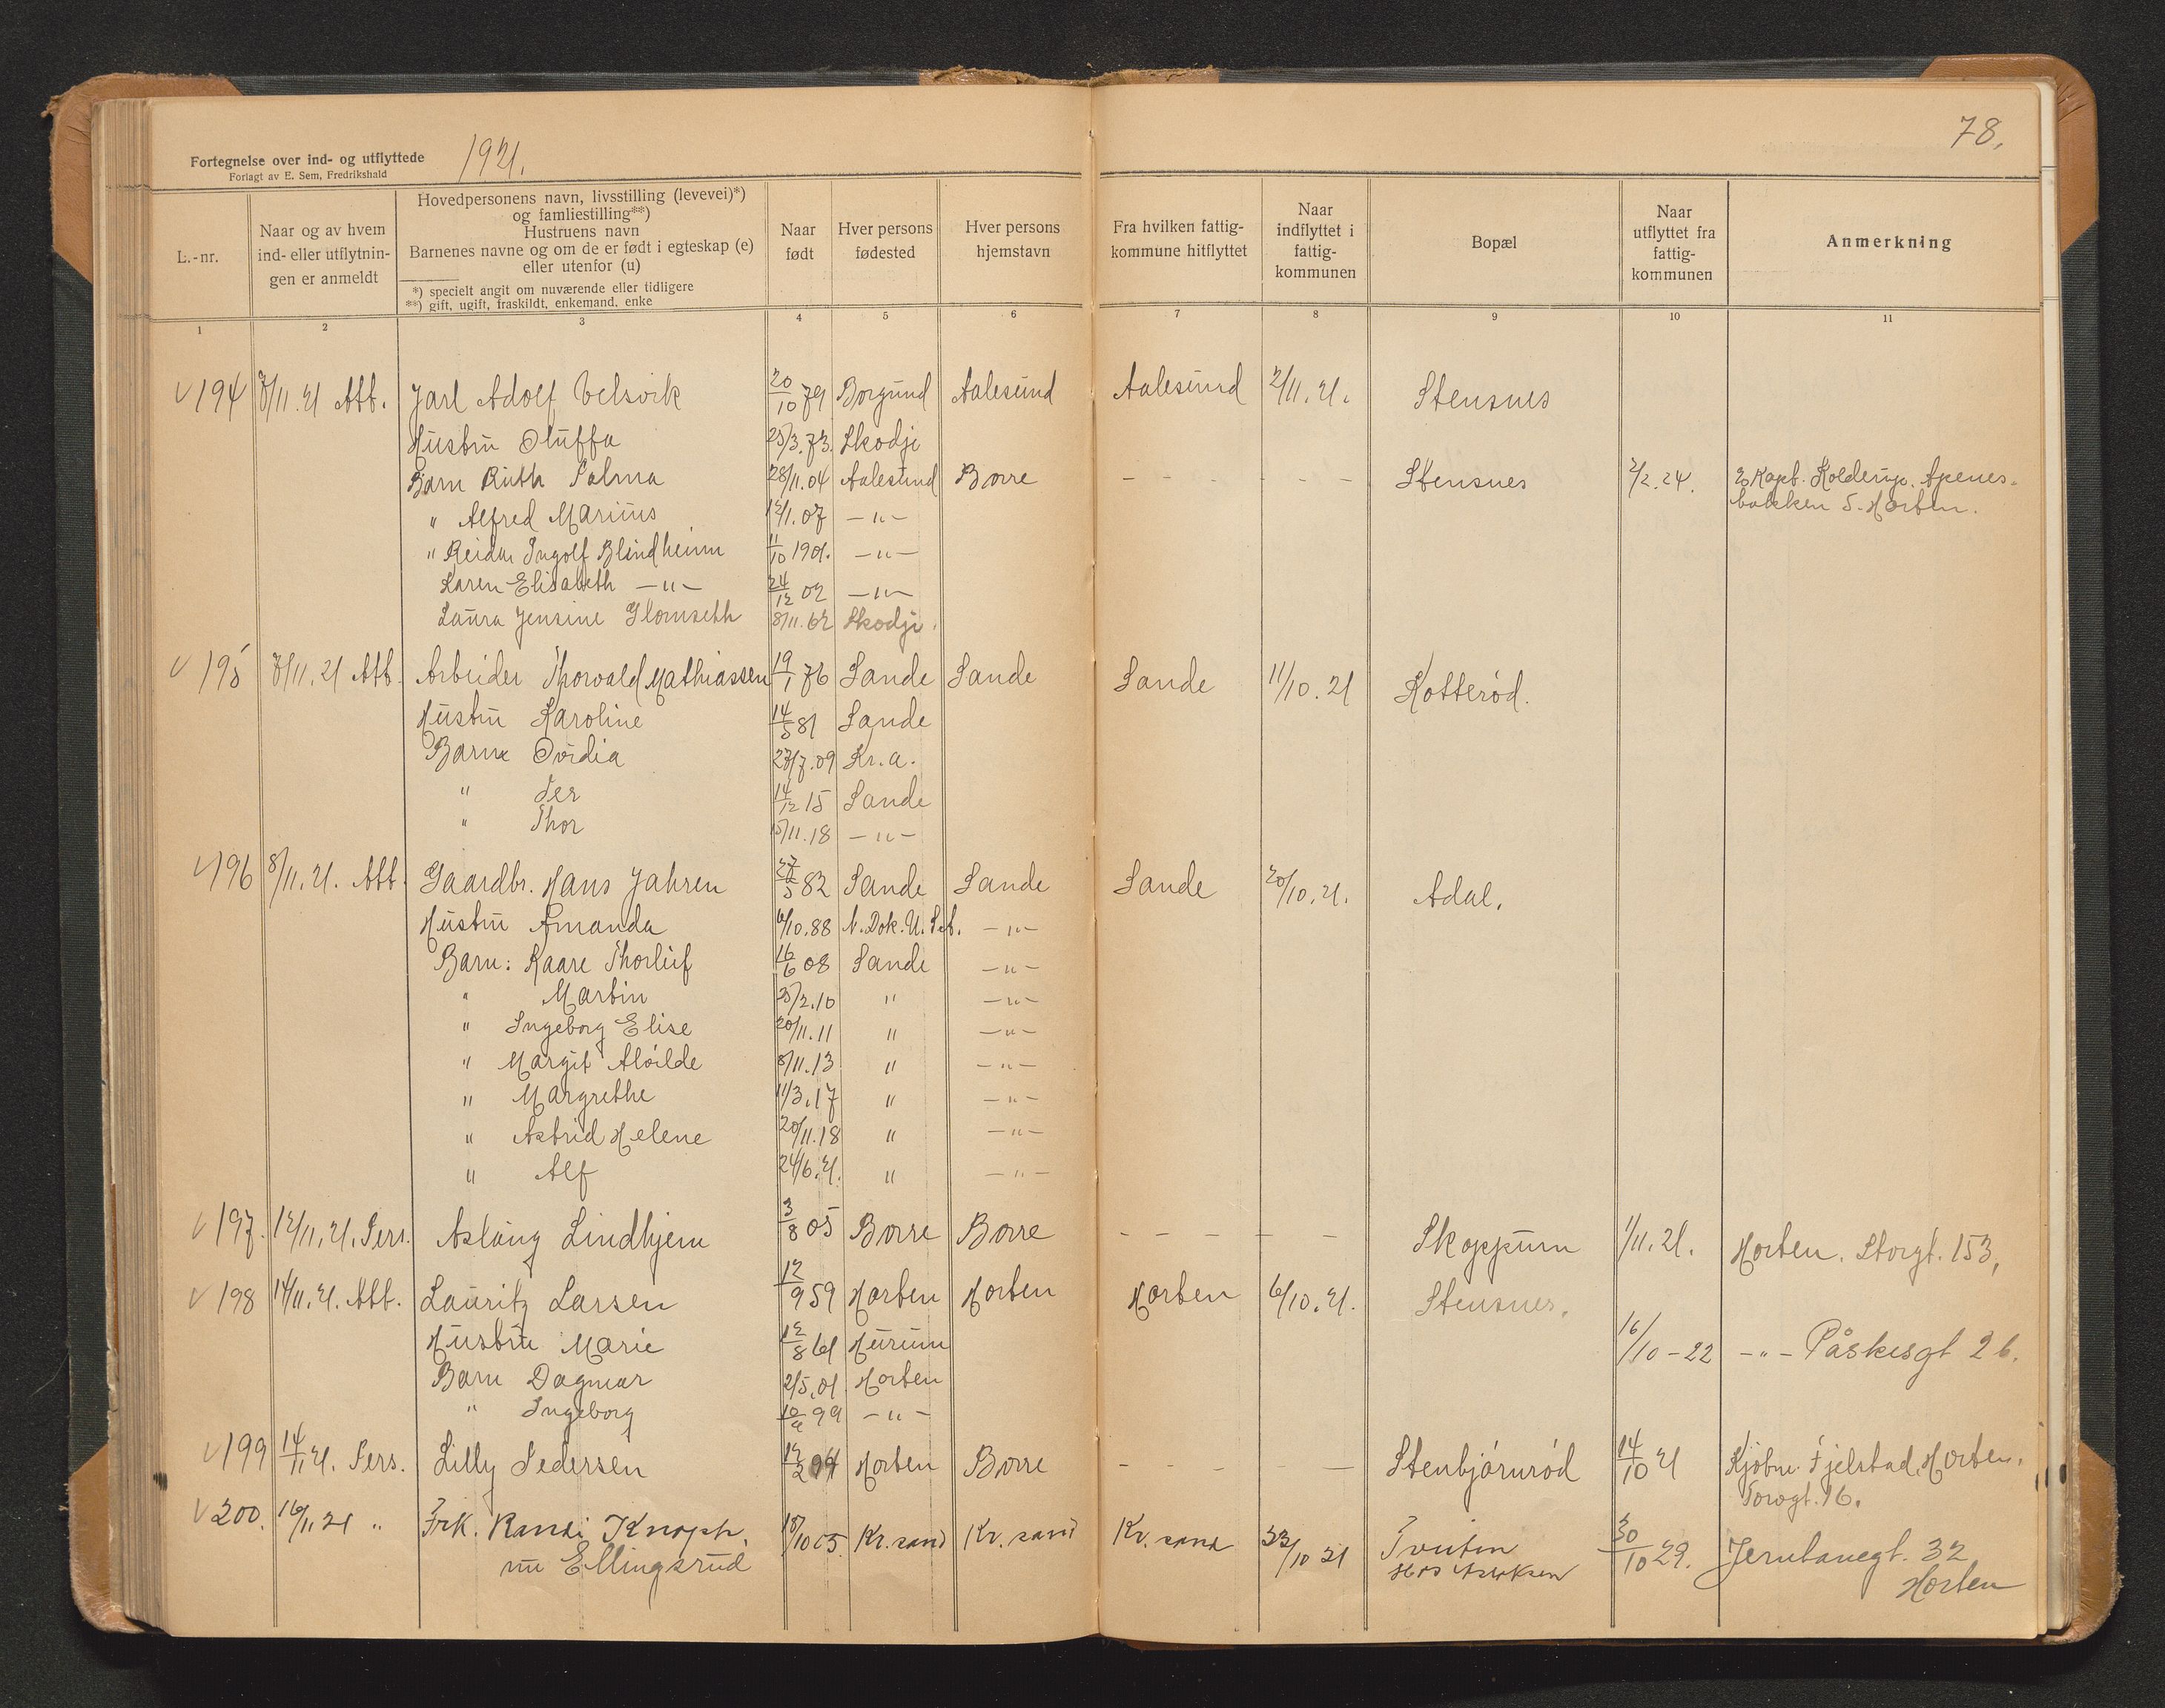 78.
Fortegnelse over ind- og utflyttede 1921.
Forlagt av E. Sem, Fredrikshald
L.-nr.
Naar og av hvem
ind- eller utflytnin-
gen er anmeldt
Hovedpersonens navn, livsstilling (levevei)*)
og famliestilling**)
Hustruens navn
Barnenes navne og om de er født i egteskap (e)
eller utenfor (u)
*) specielt angit om nuværende eller tidligere
**) gift, ugift, fraskildt, enkemand, enke
Naar
født
Hver persons
fødested
Hver persons
hjemstavn
Fra hvilken fattig-
kommune hitflyttet
Naar
indflyttet i
fattig-
kommunen
Bopæl
Naar
utflyttet fra
fattig-
kommunen
Anmerkning
1 2 3 4 5 6 7 8 9 10 11
194 7/11.21 Att. Jarl Adolf Velsvik 20/10 79 Borgund Aalesund Aalesund 2/11.21. Stensnes
Hustru Oluffa 25/3.73. Skodje
Barn Ruth Palma 28/11.04 Aalesund Borre - - - - - - Stensnes 2/2.24. Kapt. Kolderup. Apenes-
bakken 5. Horten.
" Alfred Marius 12/1.07 -"-
" Reidar Ingolf Blindheim 11/10 1901. -"-
Karen Elisabeth -"- 24/12 02 -"-
Laura Jensine Glomseth 8/11.62 Skodje.
195 7/11.21 Att. Arbeider Thorvald Mathiassen 19/1 76 Sande Sande Sande 11/10.21 Kotterød.
Hustru Karoline 14/5 81 Sande
Barn Ovidia 27/7.09 Kr.a.
" Per 14/12 15 Sande
" Thor 15/11.18 -"-
196 8/11.21. Att. Gaardbr. Hans Jahren 27/5 82 Sande Sande Sande 20/10.21. Adal.
Hustru Amanda 6/10.88 N. Dak. U. Sta. -"-
Barn: Kaare Thorleif 16/6 08 Sande -"-
" Martin 25/2.10 " -"-
" Ingeborg Elise 20/11.11 " -"-
" Margit Alvilde 8/11.13 " -"-
" Margrethe 11/3.17 " -"-
" Astrid Helene 20/11.18 " -"-
" Alf 24/6.21. " -"-
197. 12/11.21. Pers. Aslaug Lindhjem 3/8 05 Borre Borre - - - - - - Skoppum 1/11.21. Horten. Storgt. 153.
198 14/11.21. Att. Lauritz Larsen 12/9 59 Horten Horten Horten 6/10.21. Stensnes.
Hustru Marie 12/8 61 Hurum 16/10-22 -"- Påskesgt 26.
Barn Dagmar 2/5.01. Horten
" Ingeborg 10/4 99 -"-
199 14/11.21. Pers. Lilly Pedersen 12/2 04 Horten Borre - - - - - Stenbjørnrød 14/10 21 Kjøbm. Fjelstad, Horten.
Torvgt. 16.
200. 16/11 21 " Frk. Randi Knoph. 18/10 05. Kr. sand Kr. sand Kr. sand 22/10 21 Tveiten 30/10 29. Jernbanegt. 32
nu Ellingsrud Hos Horten